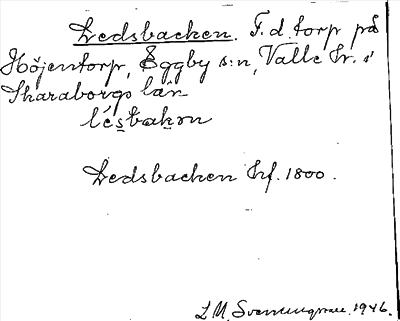 Ledsbacken. F.d. torp på
Höjentorp, Eggby s:n, Valle hr. i
Skaraborgs län
lésbakọn
Ledsbacken hf. 1800.
L M. Svenungsson. 1946.